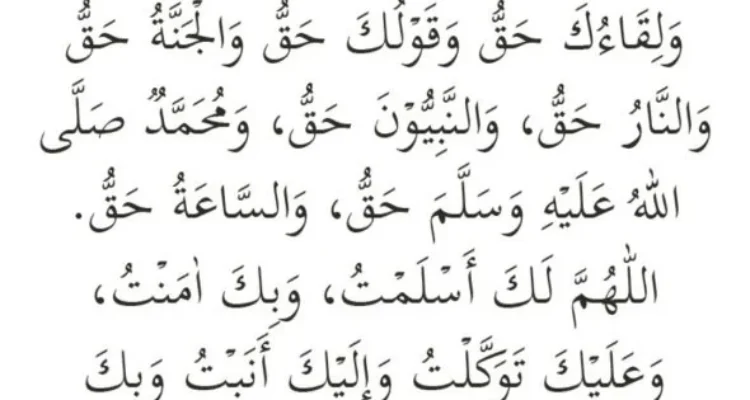 وَلِقَاءُكَ حَقٌّ وَقَوْلُكَ حَقٌّ وَالْجَنَّةُ حَقٌّ
وَالنَّارُ حَقٌّ، وَالنَّبِيُّوْنَ حَقٌّ، وَمُحَمَّدٌ صَلَّى
اللهُ عَلَيْهِ وَسَلَّمَ حَقٌّ، وَالسَّاعَةُ حَقٌّ.
اللّٰهُمَّ لَكَ أَسْلَمْتُ، وَبِكَ اٰمَنْتُ،
وَعَلَيْكَ تَوَكَّلْتُ وَإِلَيْكَ أَنَبْتُ وَبِكَ